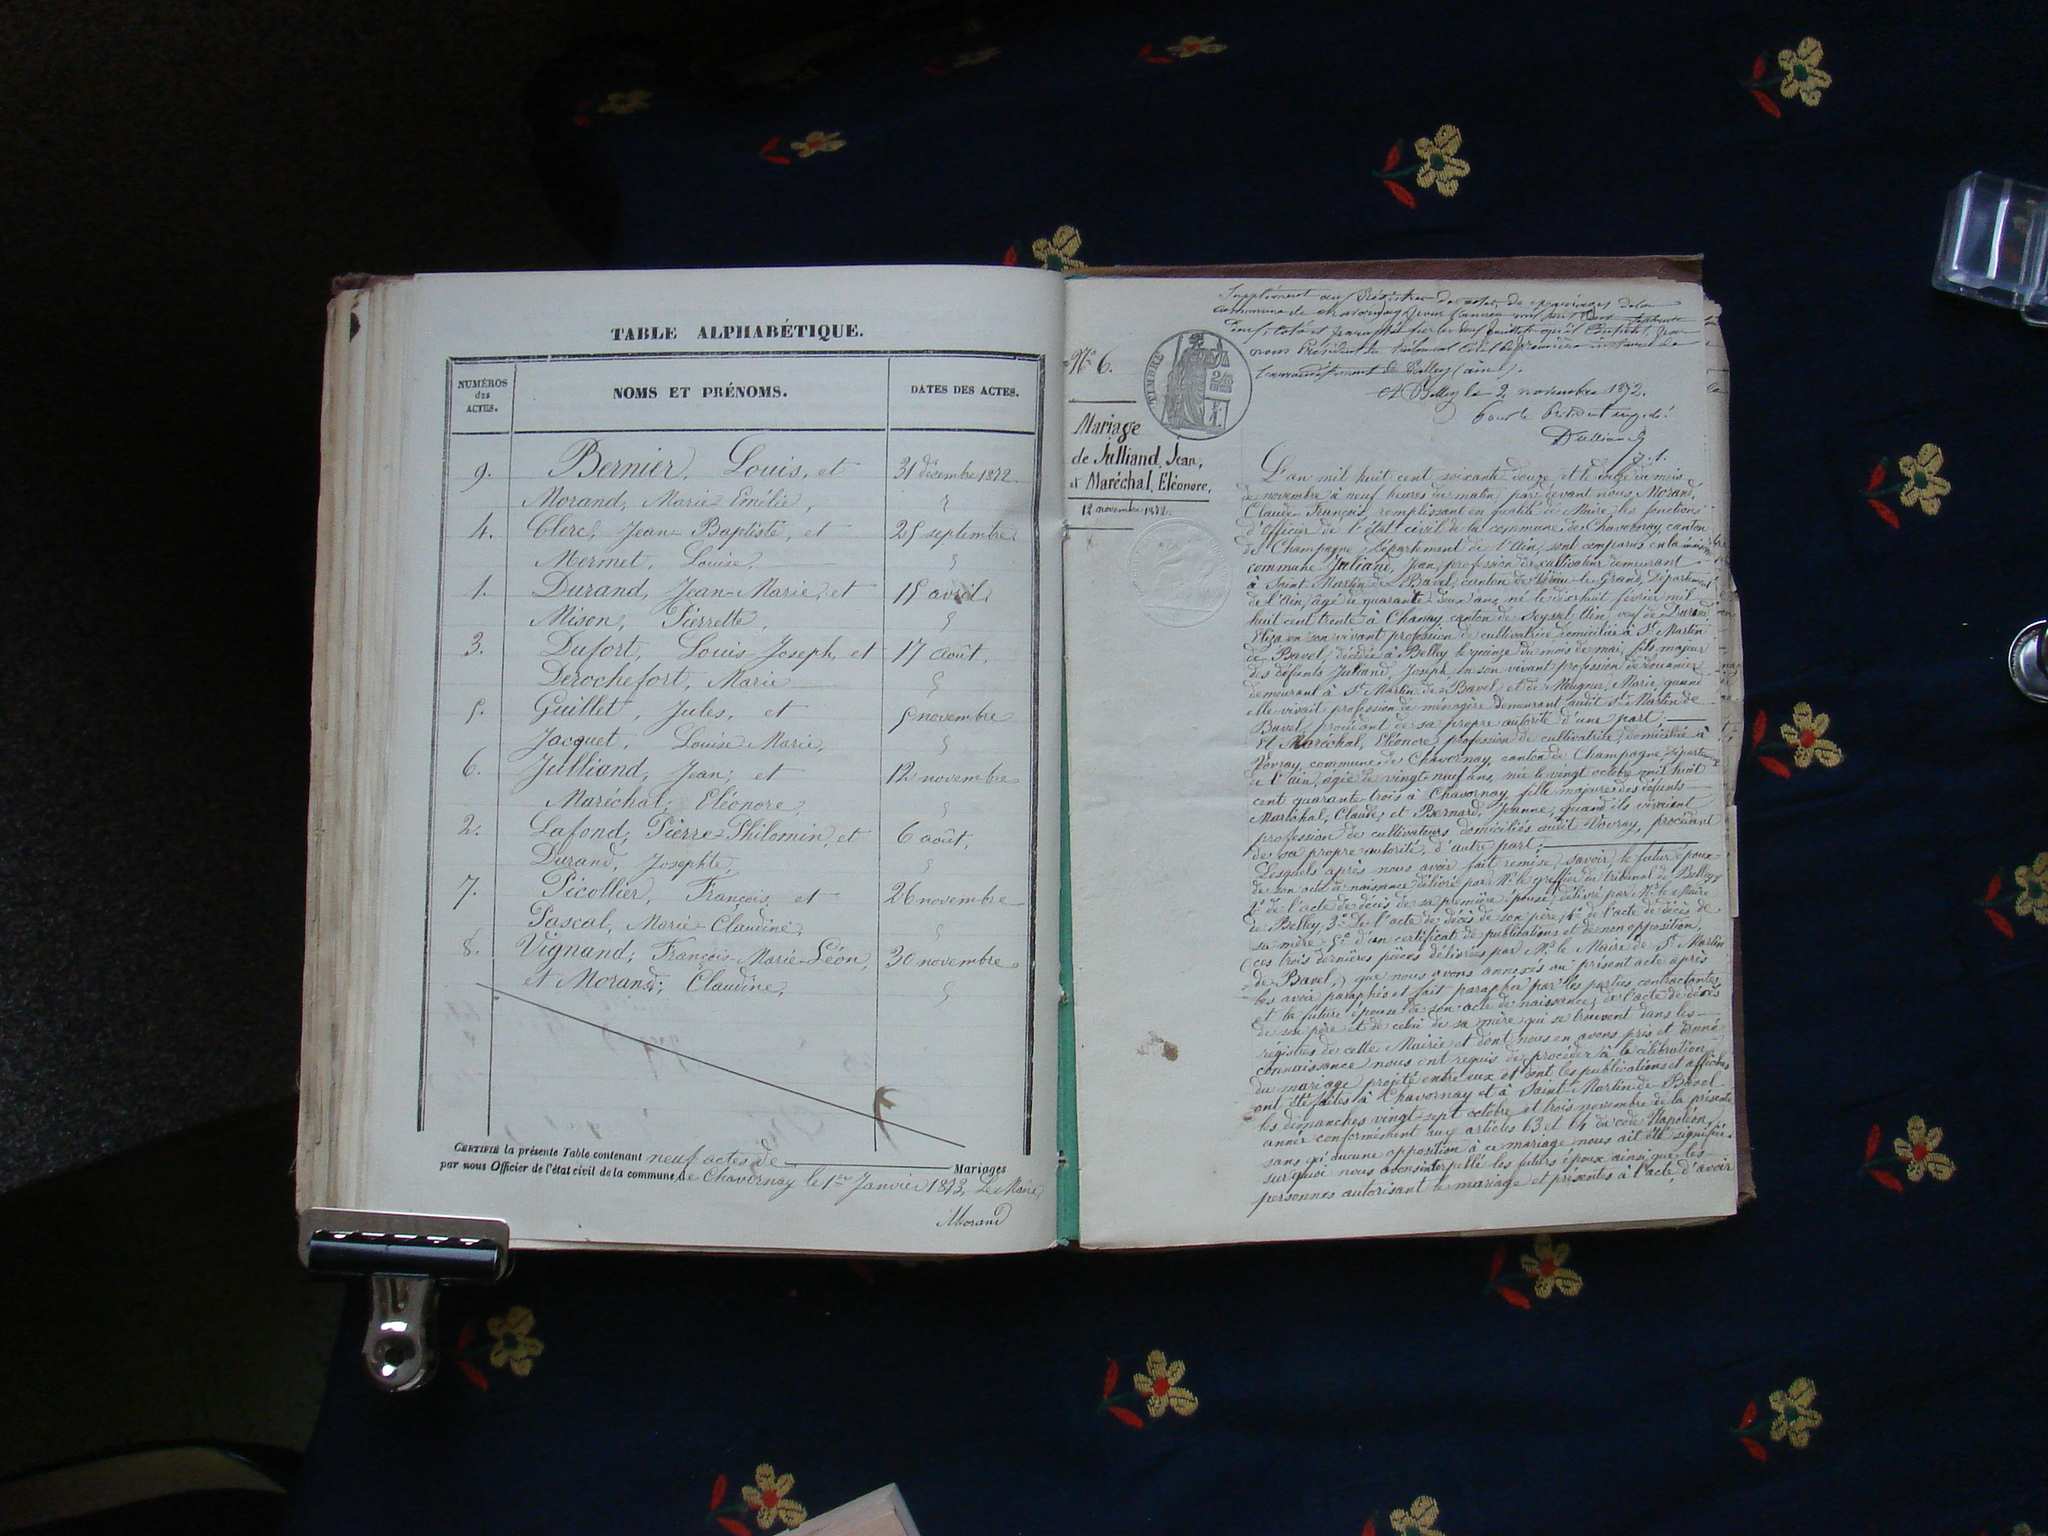 TABLE ALPHABÉTIQUE.
NUMÉROS des ACTES.
NOMS ET PRÉNOMS.
DATES DES ACTES.
9. Bernier, Louis, et 31 décembre 1872.
Morand, Marie Emélie,
4. Clerc, Jean-Baptiste, et 25 septembre
Mermet, Louise,
1. Durand, Jean-Marie, et 15 avril.
Mison, Pierrette,
3. Dufort, Louis-Joseph, et 17 août.
Derochefort, Marie
5. Guillet, Jules, et 5 novembre
Jacquet, Louise Marie,
6. Julliand, Jean, et 12 novembre
Maréchal, Eléonore,
2. Lafond, Pierre-Philomin, et 6 août,
Durand, Josephte,
7. Picollier, François, et 26 novembre
Pascal, Marie-Claudine,
8. Vignand, François-Marie-Léon, 30 novembre
et Morand, Claudine,
CERTIFIÉ la présente Table contenant neuf actes de Mariages
par nous Officier de l'état civil de la commune de Chavornay le 1er Janvier 1873, Le Maire,
Morand
Supplément aux Régistres de mariages de la
commune de Chavornay pour l'année mil huit cent
nous Président du tribunal civil de première instance de
l'arrondissement de Belley (ain).
A Belley le 2 novembre 1872.
Pour le Président empêché
TIMBRE
N° 6.
Mariage
de Julliand, Jean,
et Maréchal, Eléonore,
12 novembre 1872.
L'an mil huit cent soixante douze et le douze du mois
de novembre à neuf heures du matin, par devant nous, Morand,
Claude François, remplissant en qualité de Maire les fonctions
d'Officier de l'état civil de la commune de Chavornay, canton
de Champagne, Département de l'Ain, sont comparus en la maison
commune Juliand, Jean, profession de cultivateur demeurant
à Saint Martin de Bavel, canton de Virieu-le-Grand, Département
de l'Ain, âgé de quarante deux ans, né le dix huit février mil
huit cent trente à Chanay canton de Seyssel, Ain, veuf de Durand
Eliza en son vivant profession de cultivatrice domiciliée à St Martin
de Bavel, décédée à Belley le quinze du mois de mai, fils majeur
des défunts Juliand, Joseph, en son vivant profession de douanier
demeurant à St Martin de Bavel et de Meugnier, Marie, quand
elle vivait profession de ménagère demeurant audit St Martin de
Bavel, procédant de sa propre autorité d'une part;
Et Maréchal, Eléonore, profession de cultivatrice, domiciliée à
Vovray, commune de Chavornay, canton de Champagne, Départe
de l'Ain, âgée de vingt neuf ans, née le vingt octobre mil huit
cent quarante trois à Chavornay fille majeure des défunts
Maréchal, Claude, et Bernard, Jeanne, quand ils vivaient
profession de cultivateurs domiciliés audit Vovray, procédant
de sa propre autorité, d'autre part;
Lesquels après nous avoir fait remise, savoir, le futur époux
de son acte de naissance délivré par Mr le greffier du tribunal de Belley,
2° de l'acte de décès de sa première épouse, délivré par Mr le Maire
de Belley, 3° De l'acte de décès de son père, 4° de l'acte de décès de
sa mère 5° d'un certificat de publications et de non opposition,
(ces trois dernières pièces délivrées par Mr le Maire de St Martin
de Bavel) que nous avons annexés au présent acte après
les avoir paraphés et fait parapher par les parties contractantes,
et la future épouse de son acte de naissance, de l'acte de décès
de son père et de celui de sa mère qui se trouvent dans les
régistres de cette Mairie et dont nous en avons pris et donné
connaissance nous ont requis de procéder à la célébration
du mariage projeté entre eux et dont les publications et affiches
ont été faites à Chavornay et à Saint Martin-de-Bavel
les dimanches vingt-sept octobre et trois novembre de la présente
année conformément aux articles 63 et 64 du code Napoléon,
sans qu'aucune opposition à ce mariage nous ait été signifiée,
sur quoi nous avons interpellé les futurs époux ainsi que les
personnes autorisant le mariage et présentes à l'acte, d'avoir